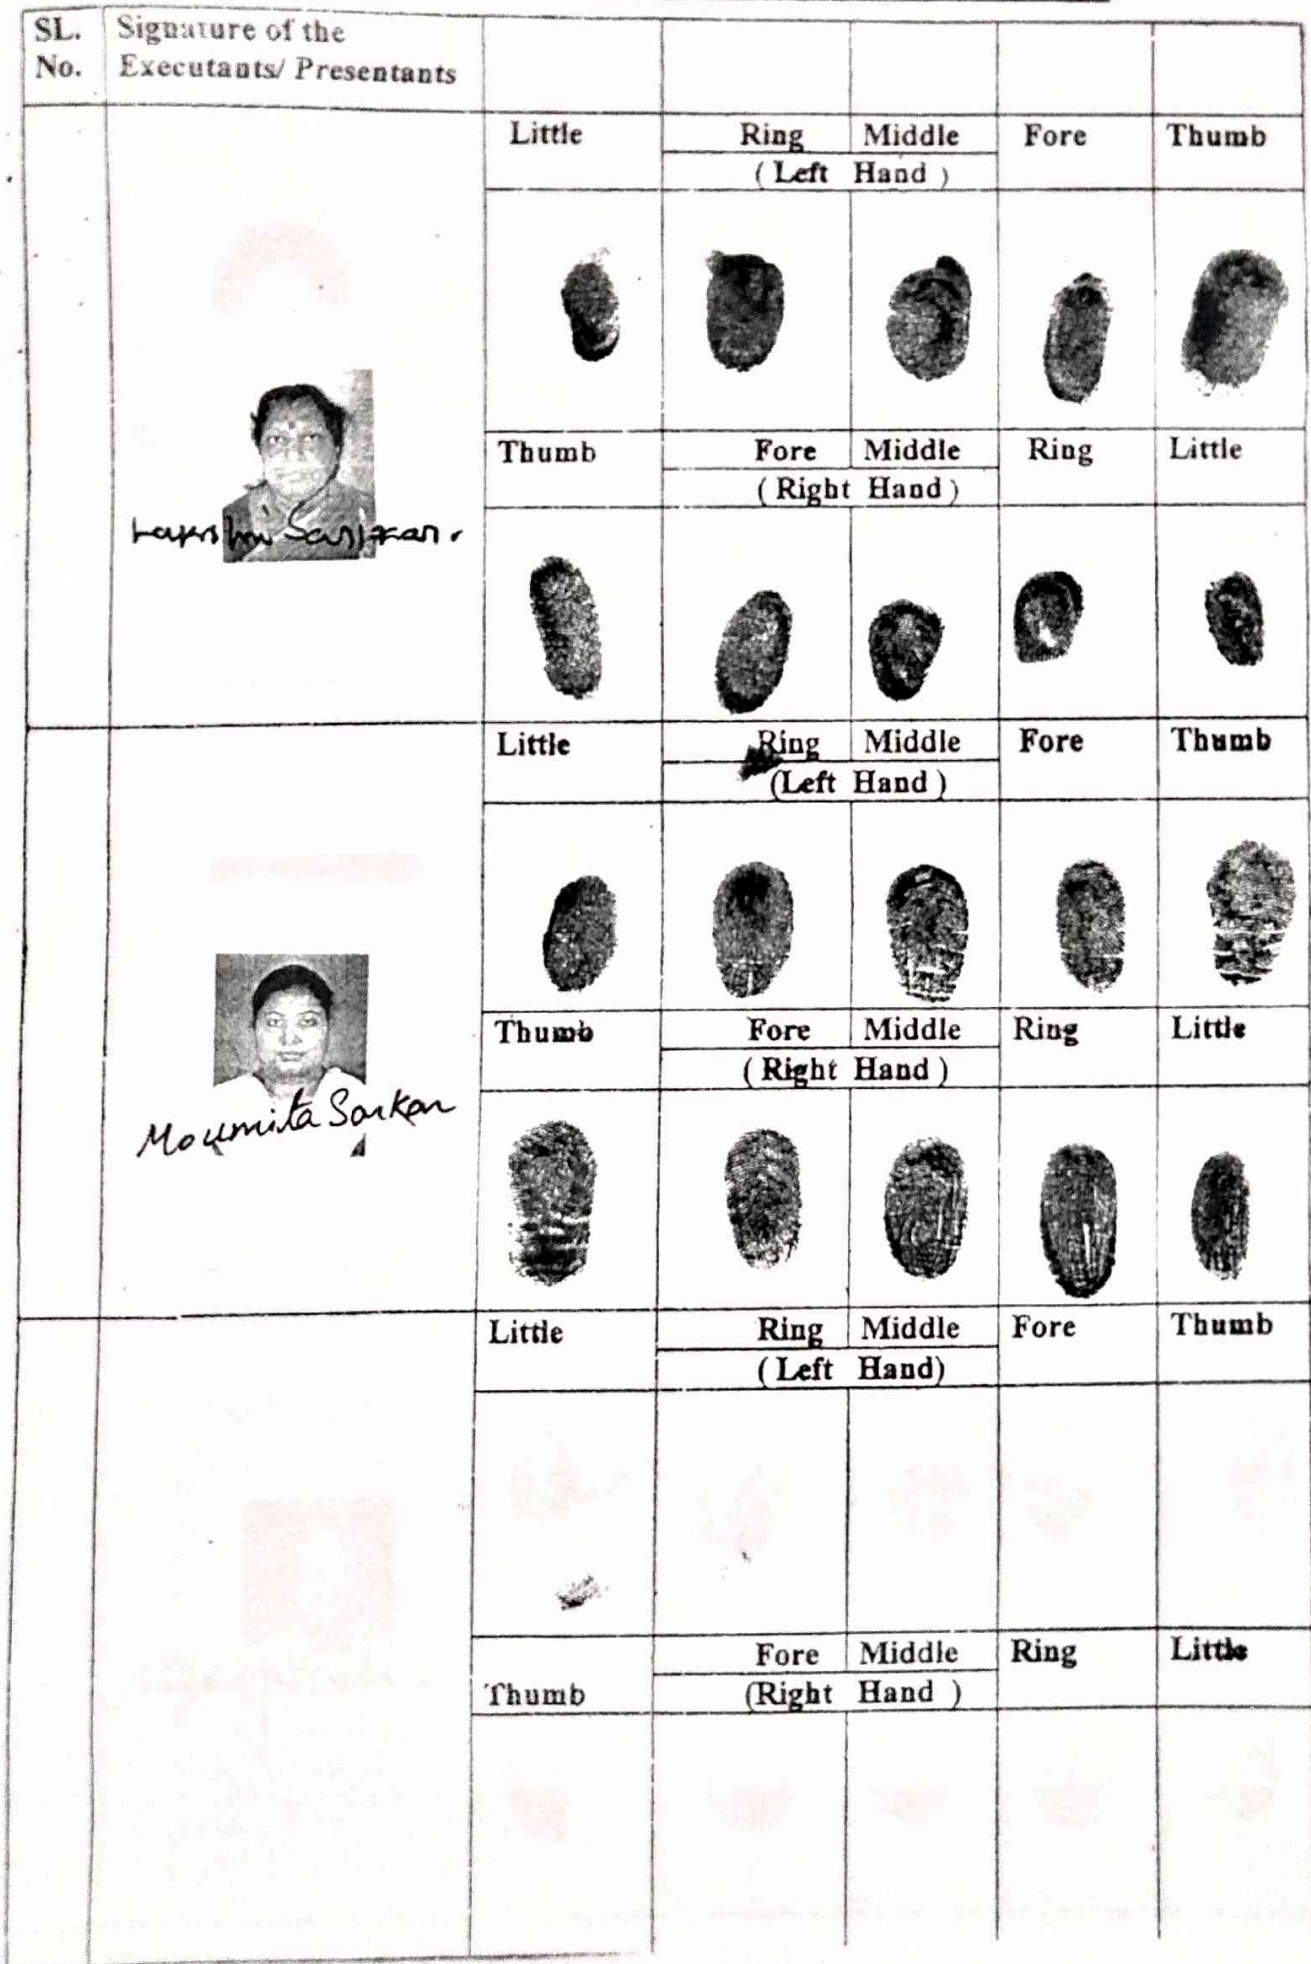 SL. Signature of the
No. Executants/ Presentants
Little Ring Middle Fore Thumb
( Left Hand )
Thumb Fore Middle Ring Little
( Right Hand )
Lakshmi Sarkar.
Little Ring Middle Fore Thumb
(Left Hand )
Thumb Fore Middle Ring Little
( Right Hand )
Moumita Sarkar
Little Ring Middle Fore Thumb
( Left Hand)
Fore Middle Ring Little
Thumb (Right Hand )